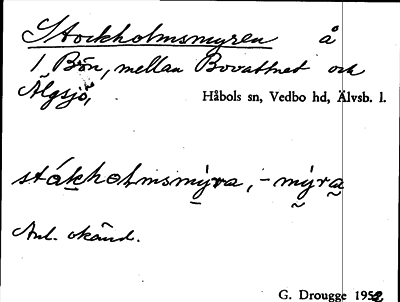 Stockholmsmyren å
1. Bön, mellan Bovattnet och
Älgsjö, Håbols sn, Vedbo hd, Älvsb. l.
stákholmsmýra, -mỳra
Anl. okänd.
G. Drougge 1952